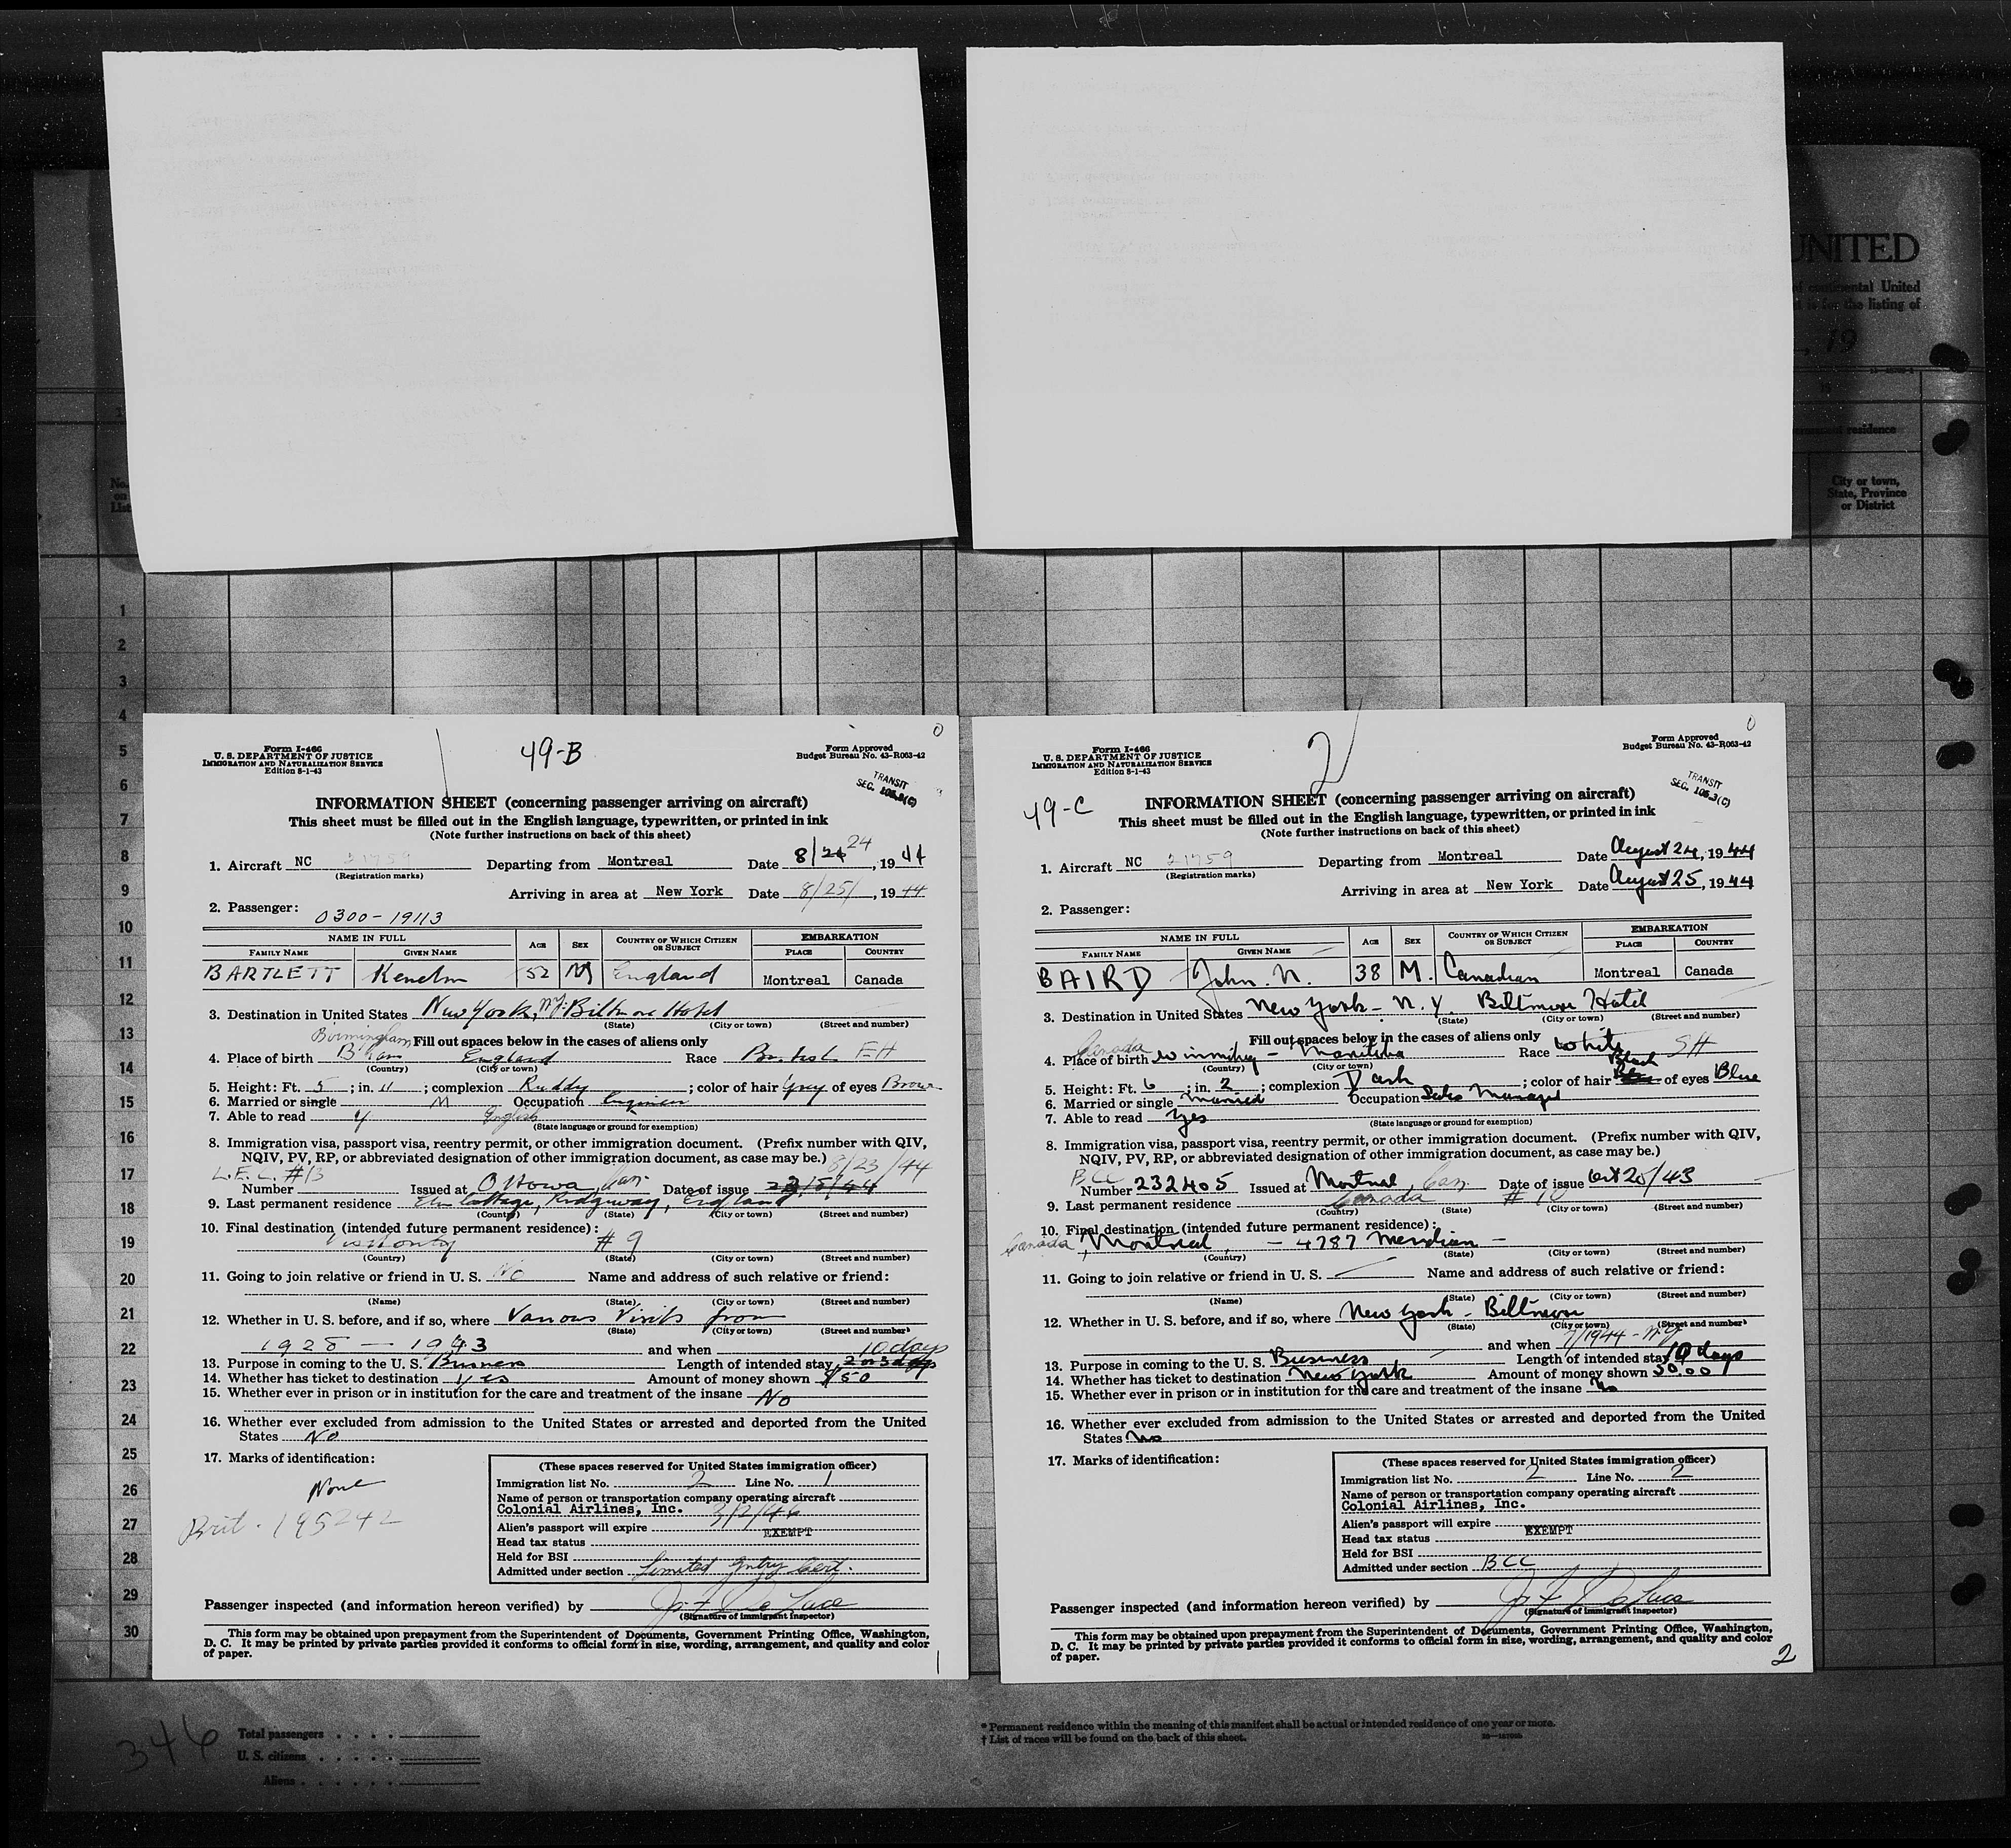 UNITED
of continental United
t is for the listing of
, 19
permanent residence
No. on List
City or town, State, Province or District
1
2
3
4
5
6
7
8
9
10
11
12
13
14
15
16
17
18
19
20
21
22
23
24
25
26
27
28
29
30
Form I-466
U. S. DEPARTMENT OF JUSTICE
IMMIGRATION AND NATURALIZATION SERVICE
Edition 8-1-43
49-B
0
Form Approved
Budget Bureau No. 43-R063-42
TRANSIT
SEC. 105.3(C)
INFORMATION SHEET (concerning passenger arriving on aircraft)
This sheet must be filled out in the English language, typewritten, or printed in ink
(Note further instructions on back of this sheet)
1. Aircraft NC 21759 Departing from Montreal Date 8/24 24, 1944
(Registration marks)
Arriving in area at New York Date 8/25/, 1944
2. Passenger: 0300-19113
NAME IN FULL AGE SEX COUNTRY OF WHICH CITIZEN OR SUBJECT EMBARKATION
FAMILY NAME GIVEN NAME PLACE COUNTRY
BARTLETT Kenelm 52 M England Montreal Canada
3. Destination in United States New York, N.Y. Biltmore Hotel
(State) (City or town) (Street and number)
Birmingham Fill out spaces below in the cases of aliens only
4. Place of birth B'ham England Race British EH
(Country) (City or town)
5. Height: Ft. 5; in. 11; complexion Ruddy; color of hair Grey of eyes Brown
6. Married or single M Occupation Engineer
7. Able to read y English
(State language or ground for exemption)
8. Immigration visa, passport visa, reentry permit, or other immigration document. (Prefix number with QIV,
NQIV, PV, RP, or abbreviated designation of other immigration document, as case may be.) 8/23/44
L.E.C. #13
Number Issued at Ottawa, Can. Date of issue
9. Last permanent residence Elm Cottage, Ridgeway, England
(Country) (State) (City or town) (Street and number)
10. Final destination (intended future permanent residence):
Visit only #9
(Country) (State) (City or town) (Street and number)
11. Going to join relative or friend in U. S. No Name and address of such relative or friend:
(Name) (State) (City or town) (Street and number)
12. Whether in U. S. before, and if so, where Various Visits from
(State) (City or town) (Street and number)
1928 — 1943 and when 10 days
13. Purpose in coming to the U. S. Business Length of intended stay 2 or 3 days
14. Whether has ticket to destination yes Amount of money shown $50
15. Whether ever in prison or in institution for the care and treatment of the insane No
16. Whether ever excluded from admission to the United States or arrested and deported from the United
States No
17. Marks of identification:
None
Brit. 195242
(These spaces reserved for United States immigration officer)
Immigration list No. 2 Line No. 1
Name of person or transportation company operating aircraft
Colonial Airlines, Inc.
Alien's passport will expire 3/2/46
Head tax status EXEMPT
Held for BSI
Admitted under section Limited Entry Cert.
Passenger inspected (and information hereon verified) by
(Signature of immigrant inspector)
This form may be obtained upon prepayment from the Superintendent of Documents, Government Printing Office, Washington,
D. C. It may be printed by private parties provided it conforms to official form in size, wording, arrangement, and quality and color
of paper.
1
Form I-466
U. S. DEPARTMENT OF JUSTICE
IMMIGRATION AND NATURALIZATION SERVICE
Edition 8-1-43
2
0
Form Approved
Budget Bureau No. 43-R063-42
TRANSIT
SEC. 105.3(C)
49-C
INFORMATION SHEET (concerning passenger arriving on aircraft)
This sheet must be filled out in the English language, typewritten, or printed in ink
(Note further instructions on back of this sheet)
1. Aircraft NC 21759 Departing from Montreal Date August 24, 1944
(Registration marks)
Arriving in area at New York Date August 25, 1944
2. Passenger:
NAME IN FULL AGE SEX COUNTRY OF WHICH CITIZEN OR SUBJECT EMBARKATION
FAMILY NAME GIVEN NAME PLACE COUNTRY
BAIRD John. N. 38 M. Canadian Montreal Canada
3. Destination in United States New York - N.Y. Biltmore Hotel
(State) (City or town) (Street and number)
Fill out spaces below in the cases of aliens only
Canada
4. Place of birth Winnipeg - Manitoba Race White SH
(Country) (City or town)
5. Height: Ft. 6; in. 2; complexion Dark; color of hair Black of eyes Blue
6. Married or single Married Occupation Sales Manager
7. Able to read Yes
(State language or ground for exemption)
8. Immigration visa, passport visa, reentry permit, or other immigration document. (Prefix number with QIV,
NQIV, PV, RP, or abbreviated designation of other immigration document, as case may be.)
BCC
Number 232405 Issued at Montreal Can Date of issue Oct 25/43
9. Last permanent residence Canada #10
(Country) (State) (City or town) (Street and number)
10. Final destination (intended future permanent residence):
Canada, Montreal, - 4787 Meridian -
(Country) (State) (City or town) (Street and number)
11. Going to join relative or friend in U. S. Name and address of such relative or friend:
(Name) (State) (City or town) (Street and number)
12. Whether in U. S. before, and if so, where New York - Biltmore
(State) (City or town) (Street and number)
and when 7/1944 - N.Y.
13. Purpose in coming to the U. S. Business Length of intended stay 10 days
14. Whether has ticket to destination New York Amount of money shown 50.00
15. Whether ever in prison or in institution for the care and treatment of the insane No
16. Whether ever excluded from admission to the United States or arrested and deported from the United
States No
17. Marks of identification:
(These spaces reserved for United States immigration officer)
Immigration list No. 2 Line No. 2
Name of person or transportation company operating aircraft
Colonial Airlines, Inc.
Alien's passport will expire
Head tax status EXEMPT
Held for BSI
Admitted under section BCC
Passenger inspected (and information hereon verified) by
(Signature of immigrant inspector)
This form may be obtained upon prepayment from the Superintendent of Documents, Government Printing Office, Washington,
D. C. It may be printed by private parties provided it conforms to official form in size, wording, arrangement, and quality and color
of paper.
2
346
Total passengers
U. S. citizens
Aliens
* Permanent residence within the meaning of this manifest shall be actual or intended residence of one year or more.
† List of races will be found on the back of this sheet.